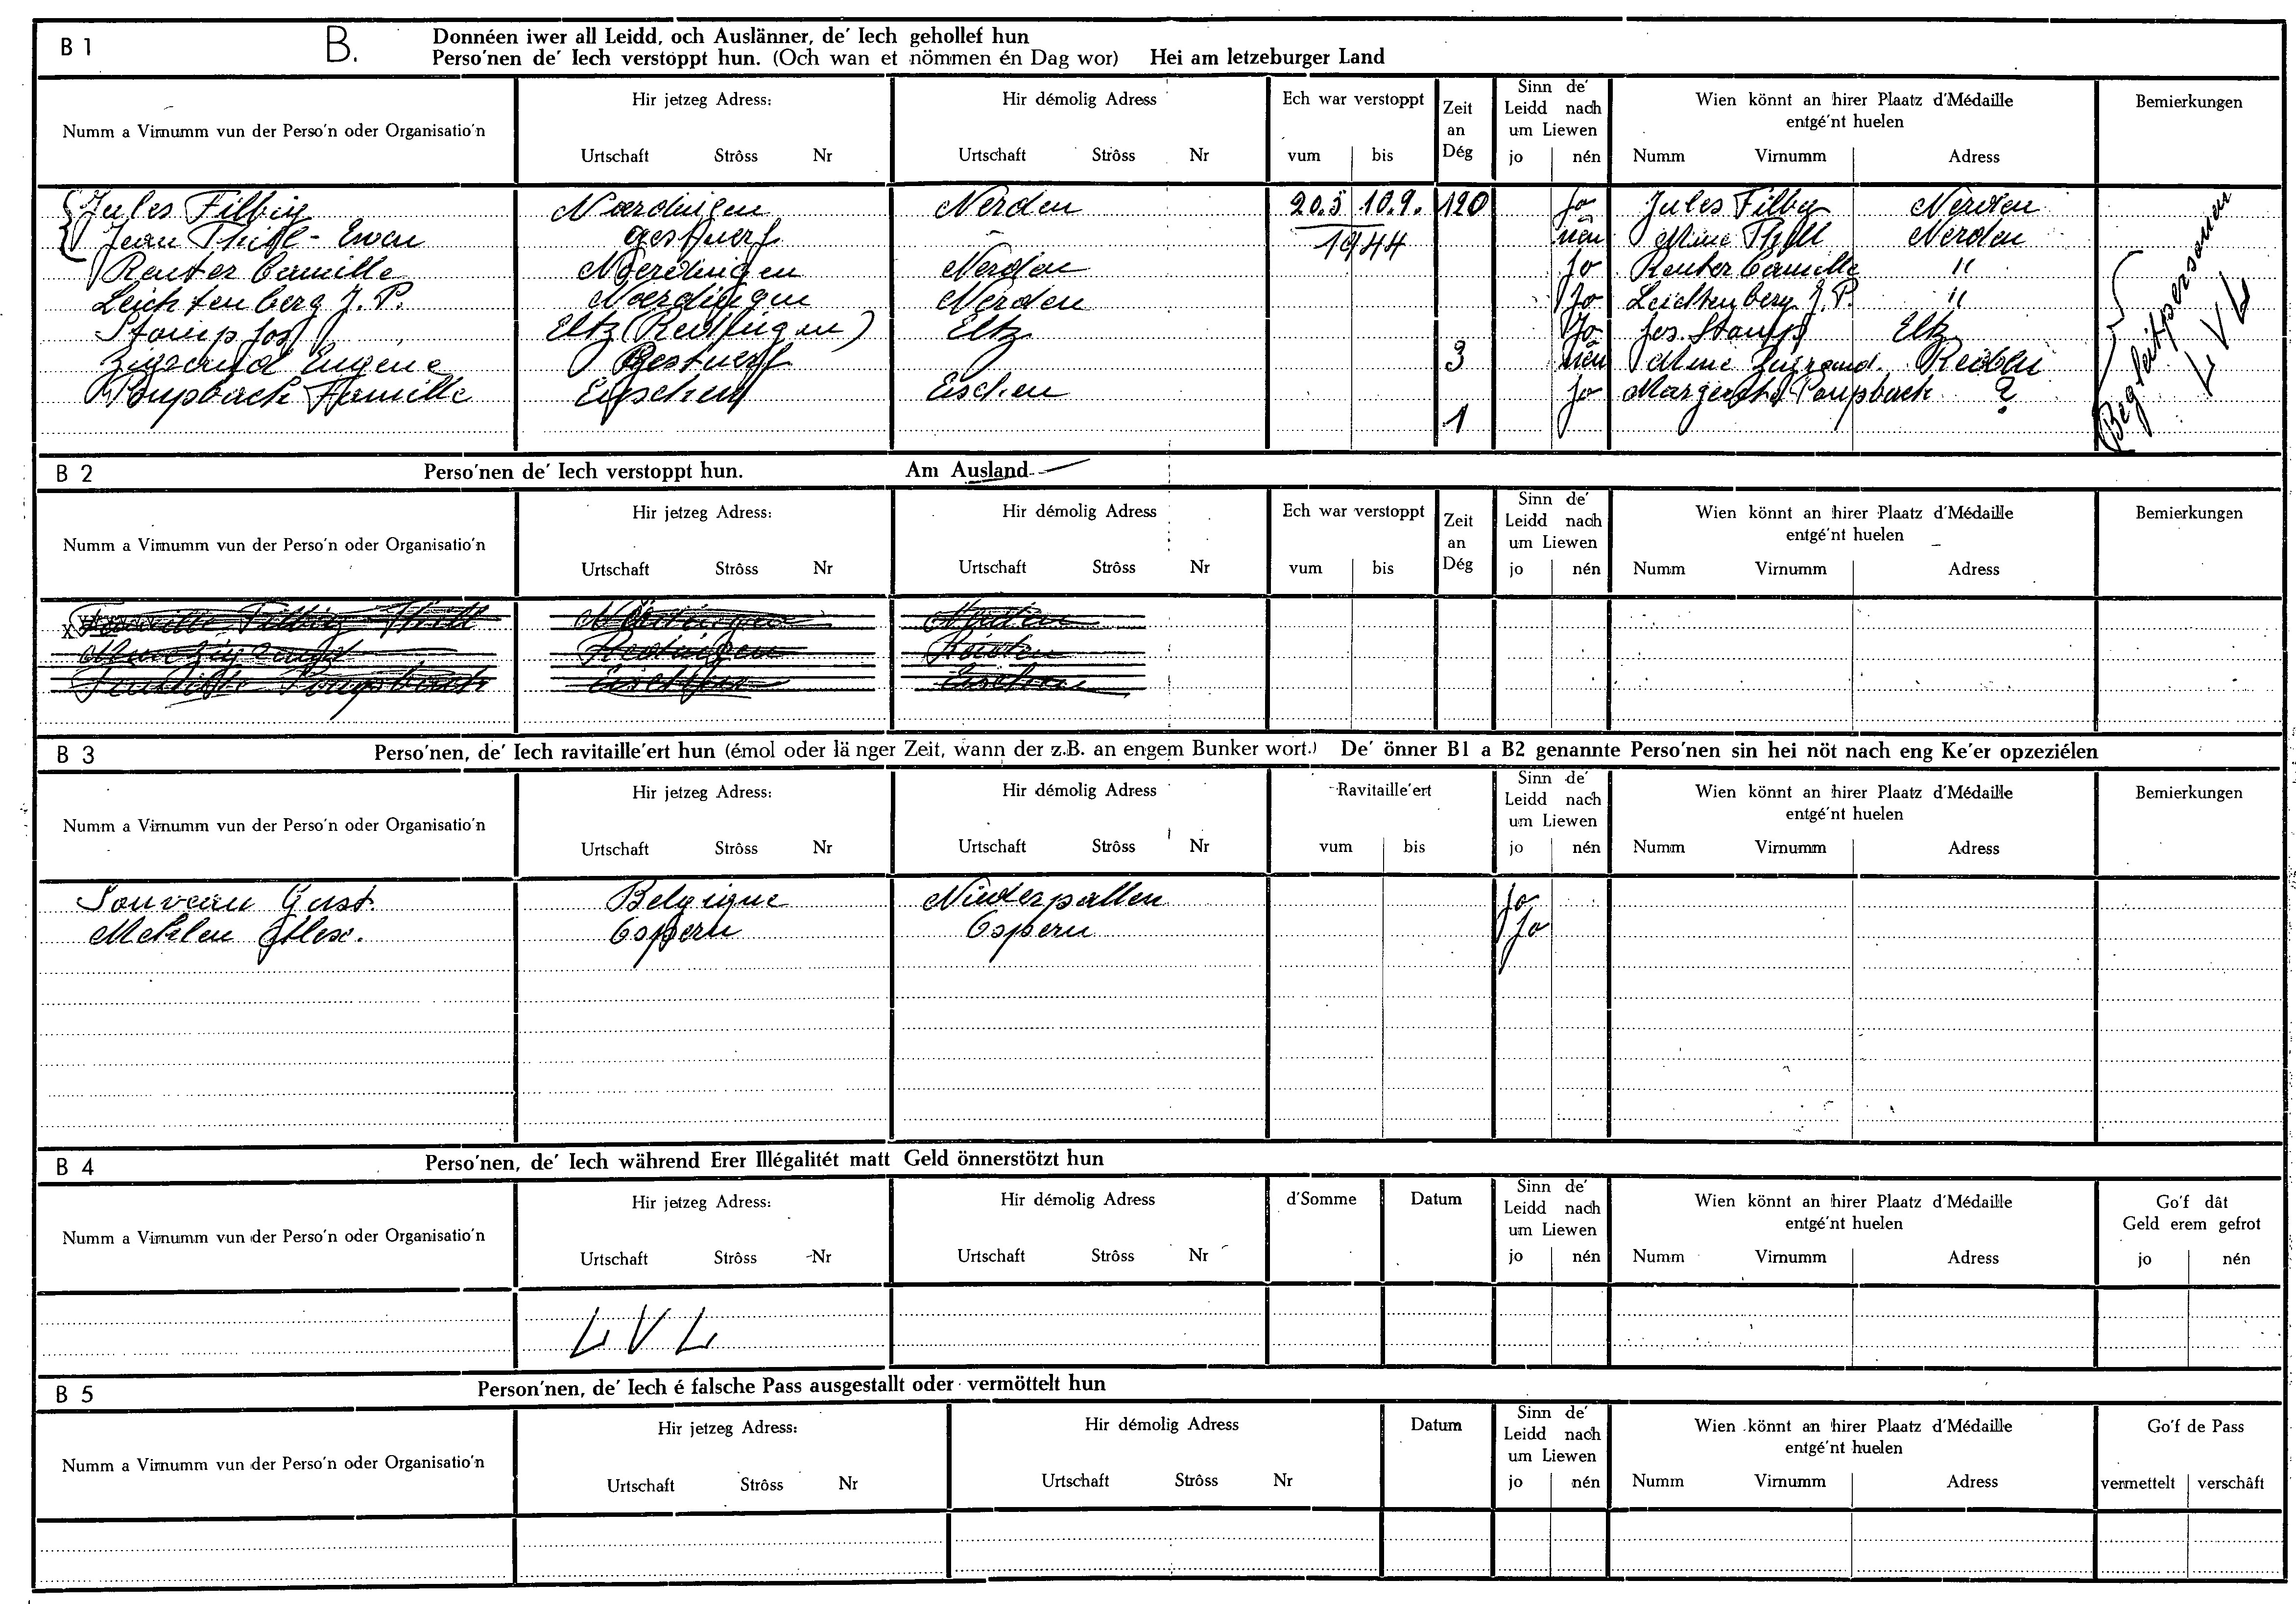 B 1 B. Donnéen iwer all Leidd, och Auslänner, de' Iech gehollef hun
Perso'nen de' Iech verstoppt hun. (Och wan et nömmen én Dag wor) Hei am letzeburger Land
Numm a Virnumm vun der Perso'n oder Organisatio'n
Hir jetzeg Adress:
Urtschaft Strôss Nr
Hir démolig Adress
Urtschaft Strôss Nr
Ech war verstoppt
vum bis
Zeit
an
Dég
Sinn de'
Leidd nach
um Liewen
jo nén
Wien könnt an hirer Plaatz d'Médaille
entgé'nt huelen
Numm Virnumm Adress
Bemierkungen
Jules Filbig Noerdingen Nerden 20.5 10.9. 120 Jo Jules Filbig Nerden
Jean Thill - Ewen gestuerf 1944 nén Mme Thill Nerden
Reuter Camille Noerdingen Nerden Jo Reuter Camille "
Leichtenberg J. P. Noerdingen Nerden Jo Leichtenberg J. P. "
Stomp Jos Eltz (Redingen) Eltz Jo Jos. Stomp Eltz
Zigrand Eugène Gestuerf 3 nén Mme Zigrand. Reiden
Poupsbach Famille Eischen Eischen 1 Jo Poupsbach ?
Begleitpersonen
L V L
B 2 Perso'nen de' Iech verstoppt hun. Am Ausland
Numm a Virnumm vun der Perso'n oder Organisatio'n
Hir jetzeg Adress:
Urtschaft Strôss Nr
Hir démolig Adress
Urtschaft Strôss Nr
Ech war verstoppt
vum bis
Zeit
an
Dég
Sinn de'
Leidd nach
um Liewen
jo nén
Wien könnt an hirer Plaatz d'Médaille
entgé'nt huelen
Numm Virnumm Adress
Bemierkungen
B 3 Perso'nen, de' Iech ravitaille'ert hun (émol oder länger Zeit, wann der z.B. an engem Bunker wort.) De' önner B1 a B2 genannte Perso'nen sin hei nöt nach eng Ke'er opzeziélen
Numm a Virnumm vun der Perso'n oder Organisatio'n
Hir jetzeg Adress:
Urtschaft Strôss Nr
Hir démolig Adress
Urtschaft Strôss Nr
Ravitaille'ert
vum bis
Sinn de'
Leidd nach
um Liewen
jo nén
Wien könnt an hirer Plaatz d'Médaille
entgé'nt huelen
Numm Virnumm Adress
Bemierkungen
Souveau Gust. Belgique Niederpallen Jo
Mehlen Alex. Ospern Ospern Jo
B 4 Perso'nen, de' Iech während Erer Illégalitét matt Geld önnerstötzt hun
Numm a Virnumm vun der Perso'n oder Organisatio'n
Hir jetzeg Adress:
Urtschaft Strôss Nr
Hir démolig Adress
Urtschaft Strôss Nr
d'Somme
Datum
Sinn de'
Leidd nach
um Liewen
jo nén
Wien könnt an hirer Plaatz d'Médaille
entgé'nt huelen
Numm Virnumm Adress
Go'f dât
Geld erem gefrot
jo nén
L V L
B 5 Person'nen, de' Iech é falsche Pass ausgestallt oder vermöttelt hun
Numm a Virnumm vun der Perso'n oder Organisatio'n
Hir jetzeg Adress:
Urtschaft Strôss Nr
Hir démolig Adress
Urtschaft Strôss Nr
Datum
Sinn de'
Leidd nach
um Liewen
jo nén
Wien könnt an hirer Plaatz d'Médaille
entgé'nt huelen
Numm Virnumm Adress
Go'f de Pass
vermettelt verschâft